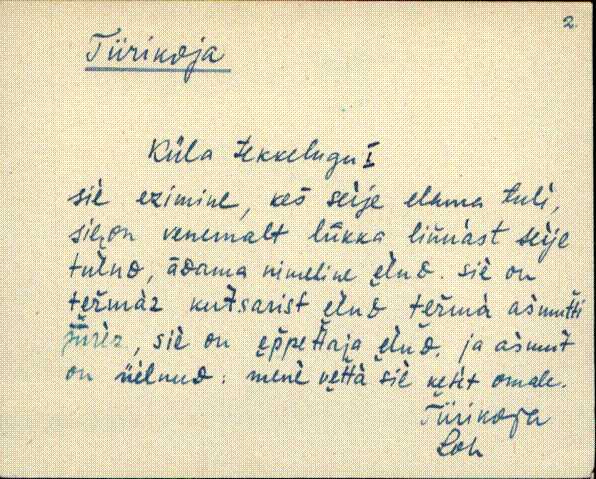 2.
Tiirikoja
Küla tekkelugu I
siè ezimine, keś seije elama tuli,
sieʒon venemalt lūkka lińnast seije
tulnᴅ, āᴅama nimeline ęlnᴅ. siè on
teřmàz kutsarist ęlnᴅ teřmà aśmutti
jūrèz, siè on ęppeťtaja ęlnᴅ. ja aśmut
on üelnuᴅ: menè vęttà siè ketit omale.
Tiirikoja
Loh